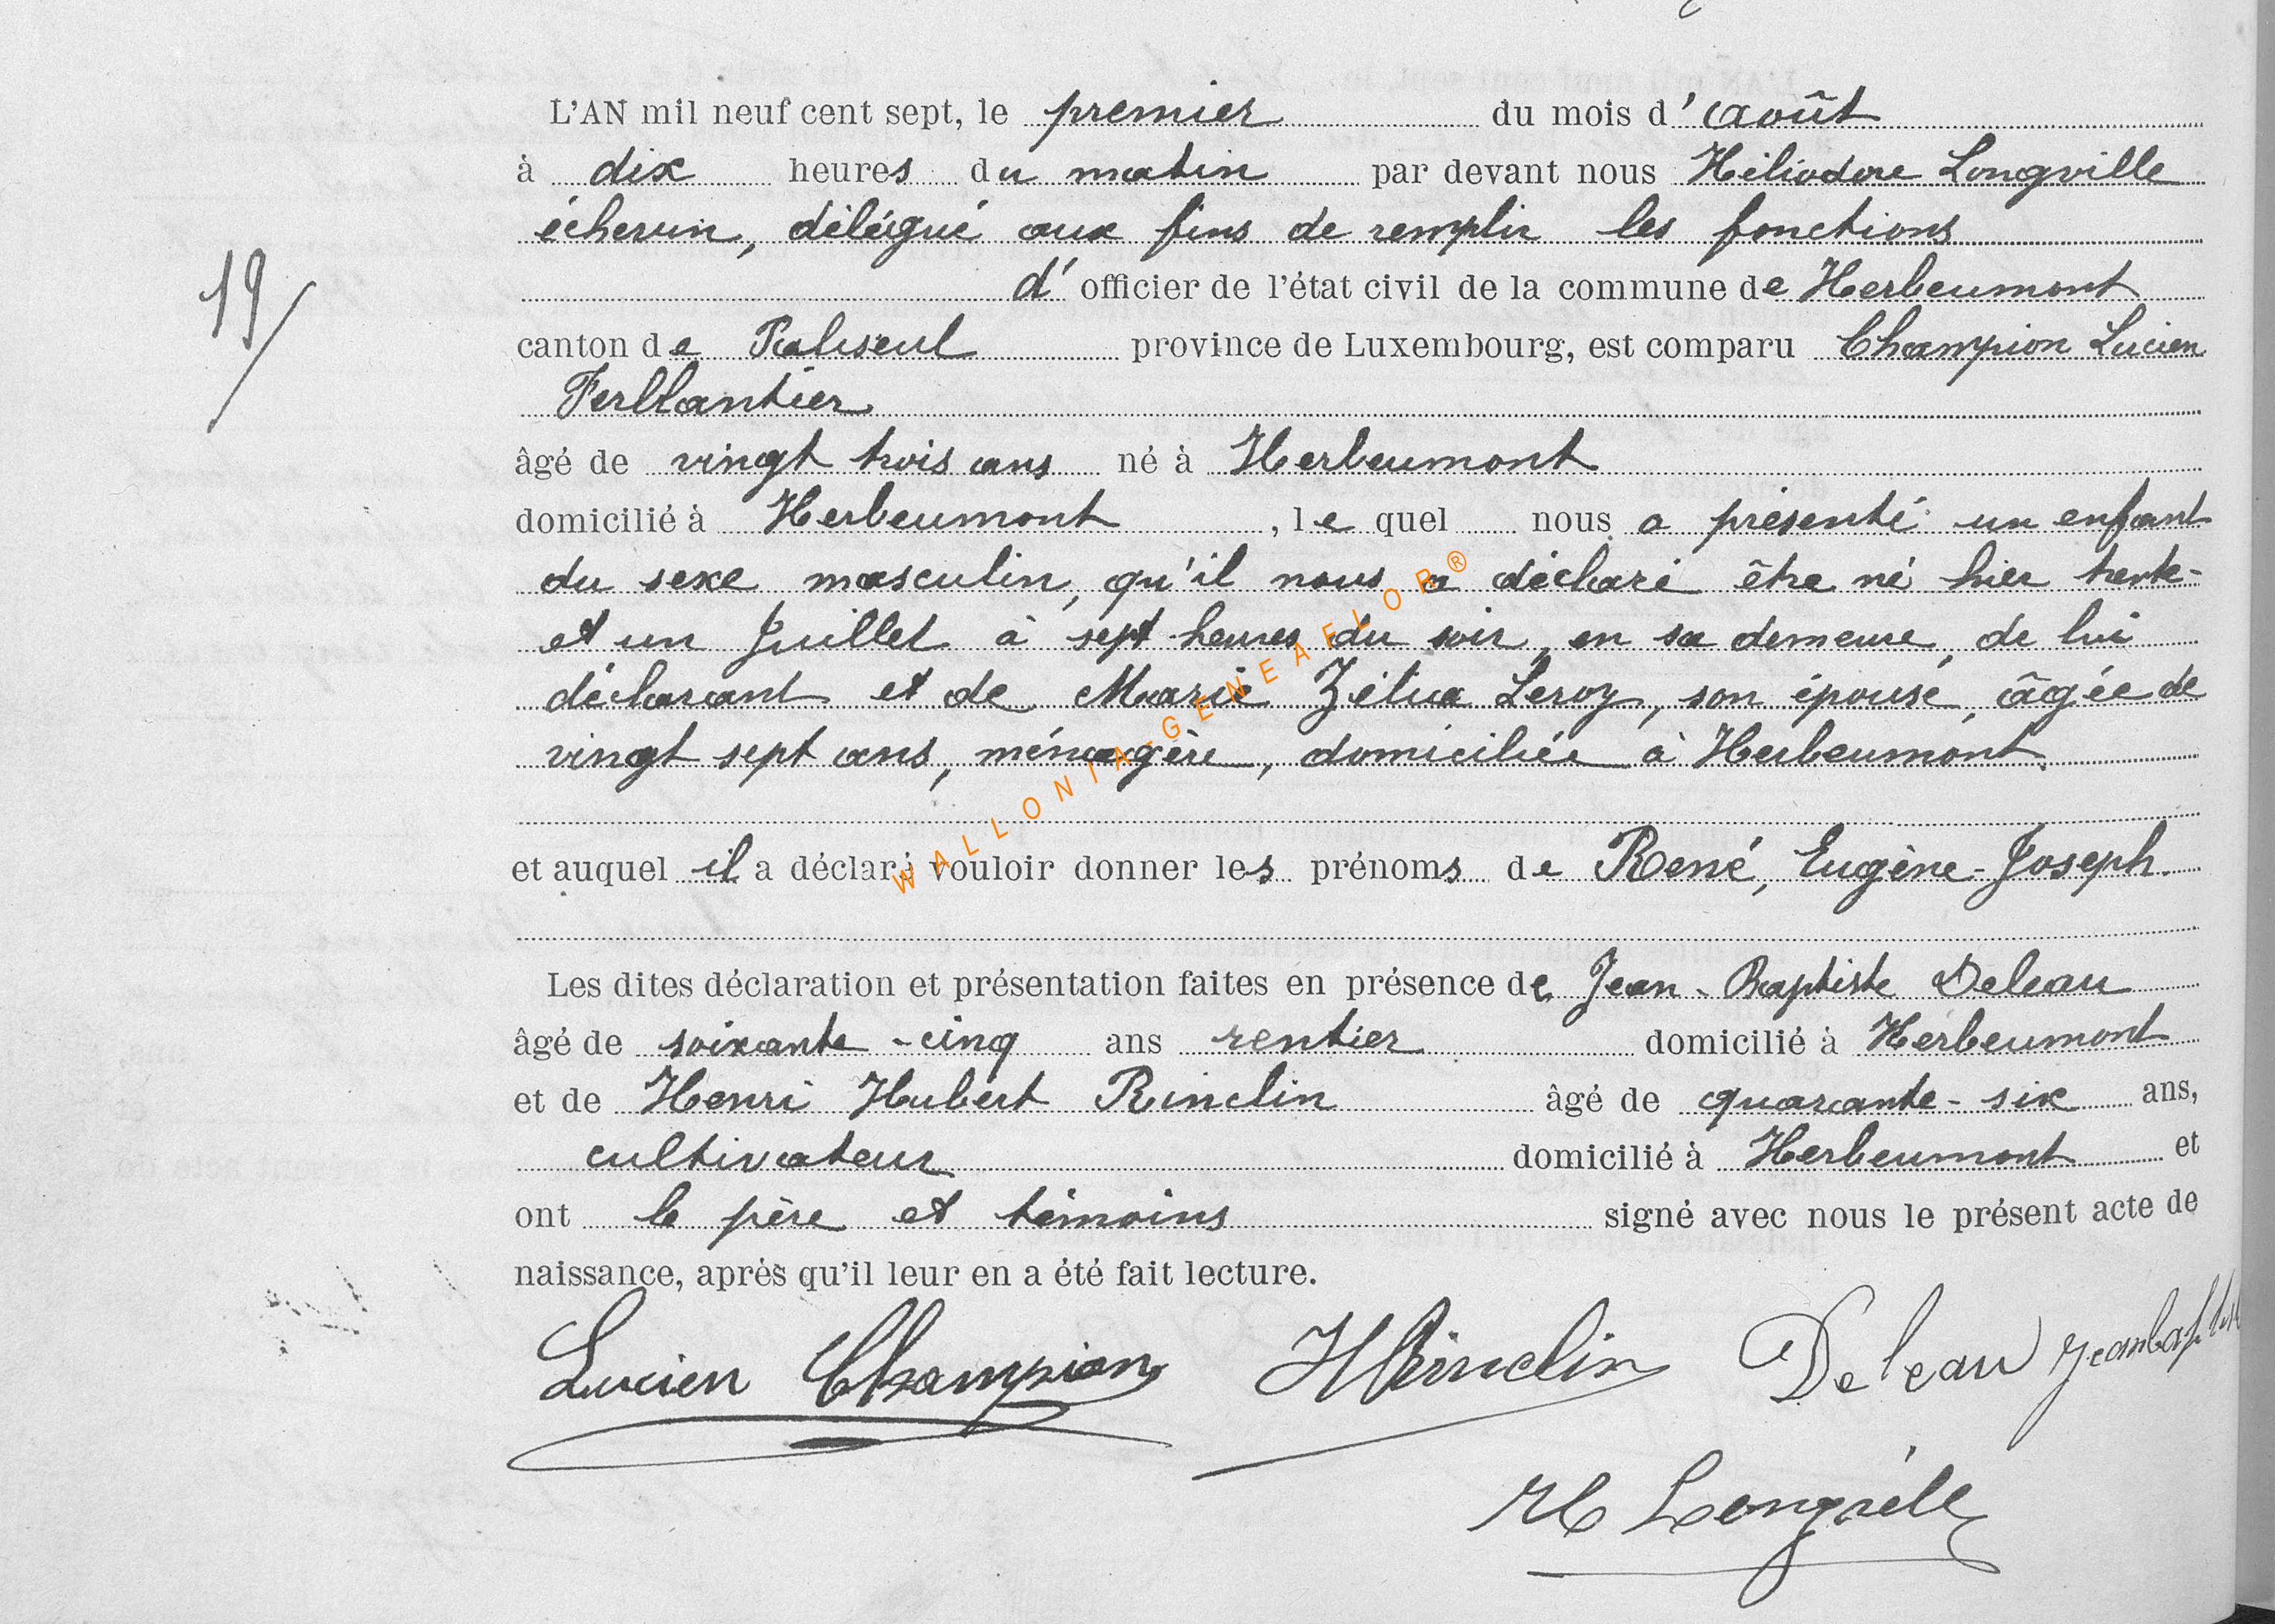 L'AN mil neuf cent sept, le premier du mois d'août
à dix heures du matin par devant nous Héliodore Longville
échevin, délégué aux fins de remplir les fonctions
19/
d'officier de l'état civil de la commune de Herbeumont
canton de Paliseul province de Luxembourg, est comparu Champion Lucien
Ferblantier
âgé de vingt trois ans né à Herbeumont
domicilié à Herbeumont, le quel nous a présenté un enfant
du sexe masculin, qu'il nous a déclaré être né hier trente-
et un Juillet à sept heures du soir, en sa demeure, de lui
déclarant et de Marie Zélia Leroy, son épouse, âgée de
vingt sept ans, ménagère, domiciliée à Herbeumont.
WALLONIA-GENEAFLOR®
et auquel il a déclaré vouloir donner les prénoms de René, Eugène-Joseph.
Les dites déclaration et présentation faites en présence de Jean-Baptiste Deleau
âgé de soixante-cinq ans rentier domicilié à Herbeumont
et de Henri Hubert Rinclin âgé de quarante-six ans,
cultivateur domicilié à Herbeumont et
ont le père et témoins signé avec nous le présent acte de
naissance, après qu'il leur en a été fait lecture.
Lucien Champion HRinclin Deleau Jeanbaptiste
H Longville